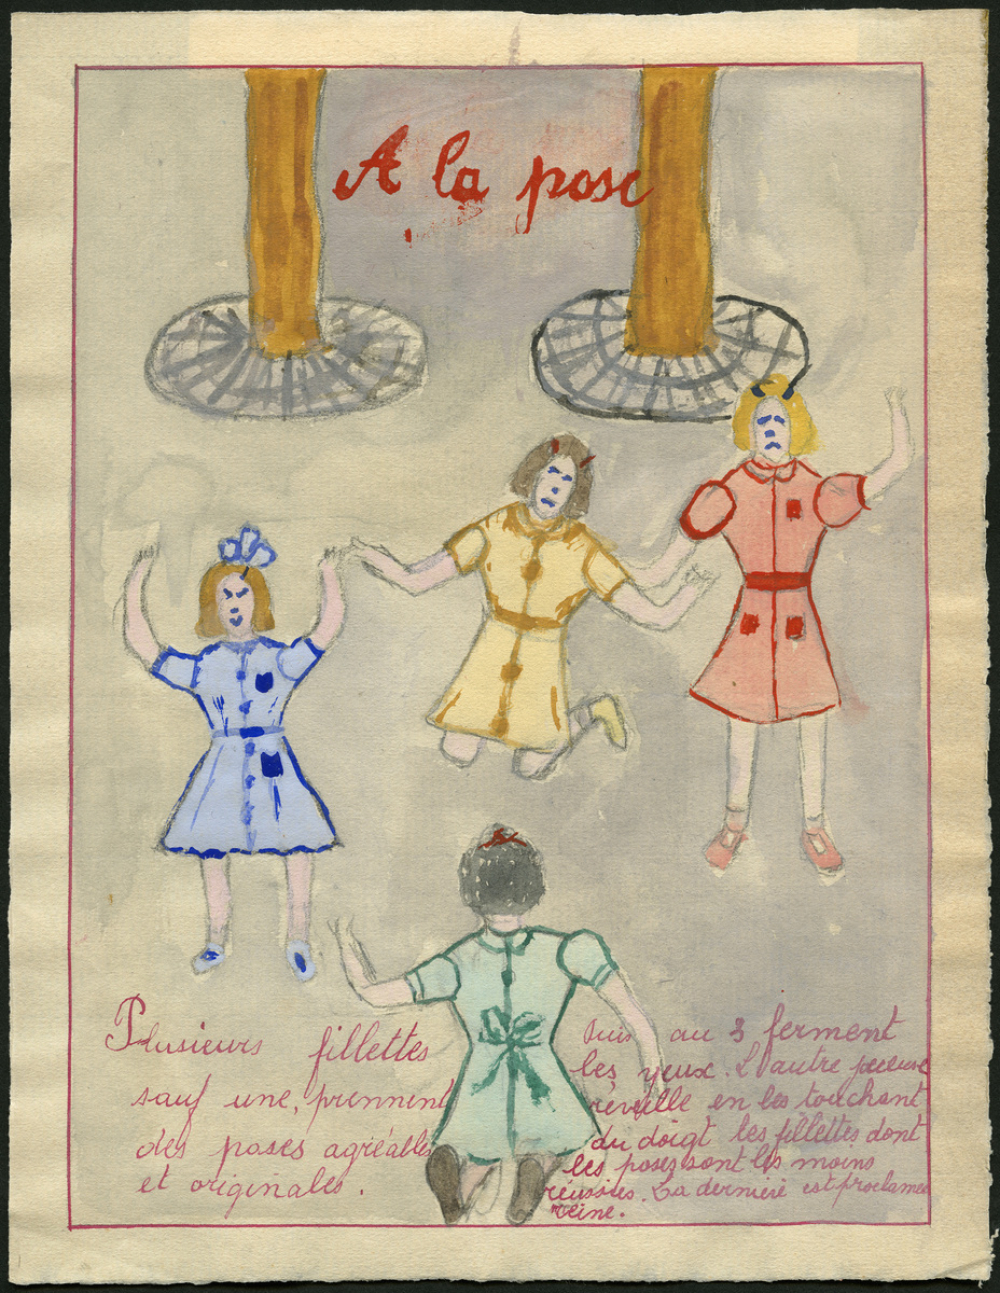 A la pose
Plusieurs fillettes
sauf une, prennent
des poses agréables
et originales.
Puis au 3 ferment
les yeux. L'autre
réveille en les touchant
du doigt les fillettes dont
les poses sont les moins
réussites. La dernière est proclamée
reine.